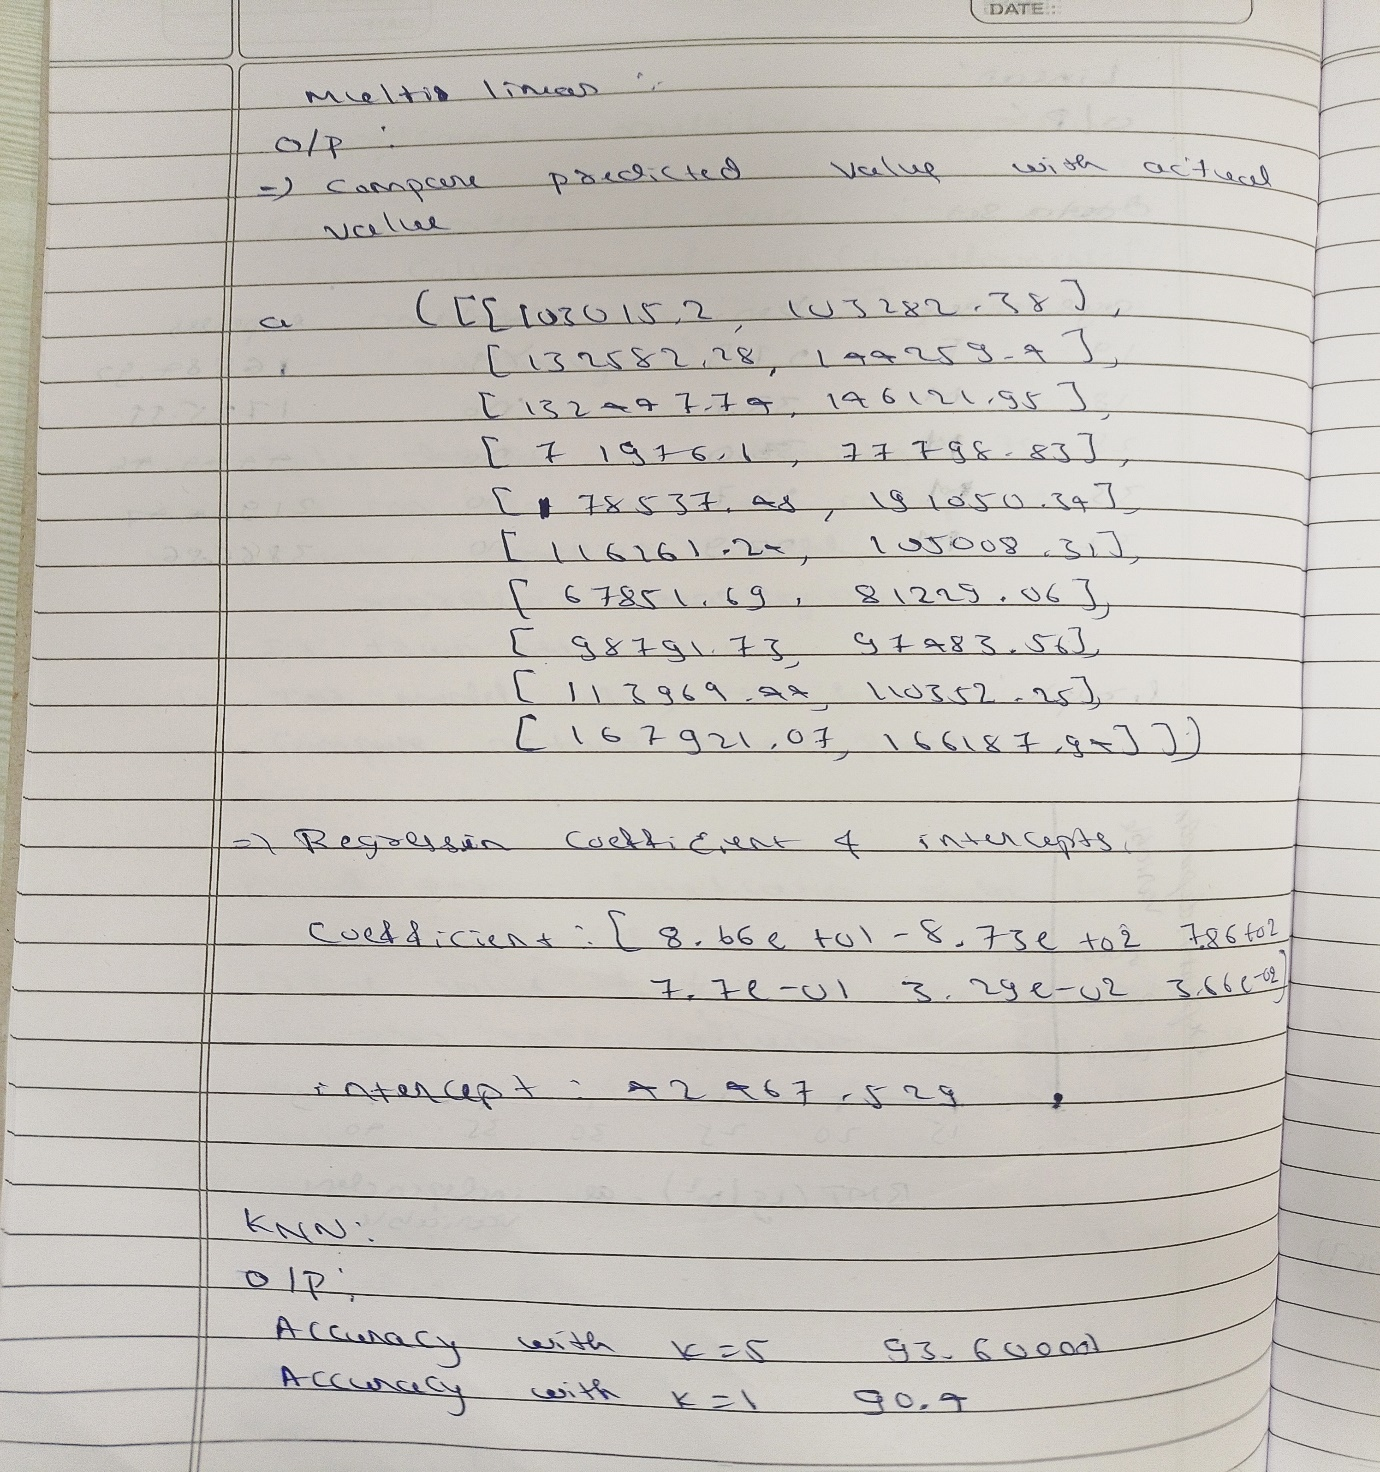 DATE:
Multip linear :
O/P :
=> Compare predicted value with actual
value
a ([[103015.2, 103282.38],
[132582.28, 144259.4],
[132447.74, 146121.95],
[71976.1, 77798.83],
[178537.48, 191050.39],
[116161.24, 105008.31],
[67851.69, 81229.06],
[98791.73, 97483.56],
[113969.44, 110352.25],
[167921.07, 166187.94]])
=> Regression coefficient & intercepts
Coefficient : [8.66e+01 -8.73e+02 7.86+02
7.7e-01 3.29e-02 3.66e-02]
intercept : 42467.529
KNN :
O/P :
Accuracy with K=5 93.60000
Accuracy with K=1 90.4